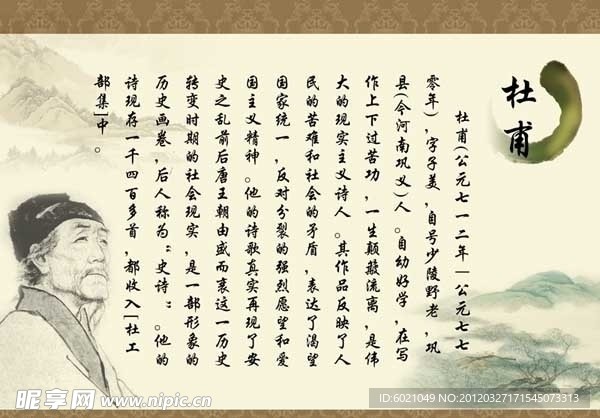 杜甫
杜甫(公元七一二年—公元七七
零年),字子美,自号少陵野老,巩
县(今河南巩义)人。自幼好学,在写
作上下过苦功,一生颠簸流离,是伟
大的现实主义诗人。其作品反映了人
民的苦难和社会的矛盾,表达了渴望
国家统一,反对分裂的强烈愿望和爱
国主义精神。他的诗歌真实再现了安
史之乱前后唐王朝由盛而衰这一历史
转变时期的社会现实,是一部形象的
历史画卷,后人称为“史诗”。他的
诗现存一千四百多首,都收入[杜工
部集]中。
昵享网 www.nipic.cn
www.nipic.com
ID:6021049 NO:20120327171545073313